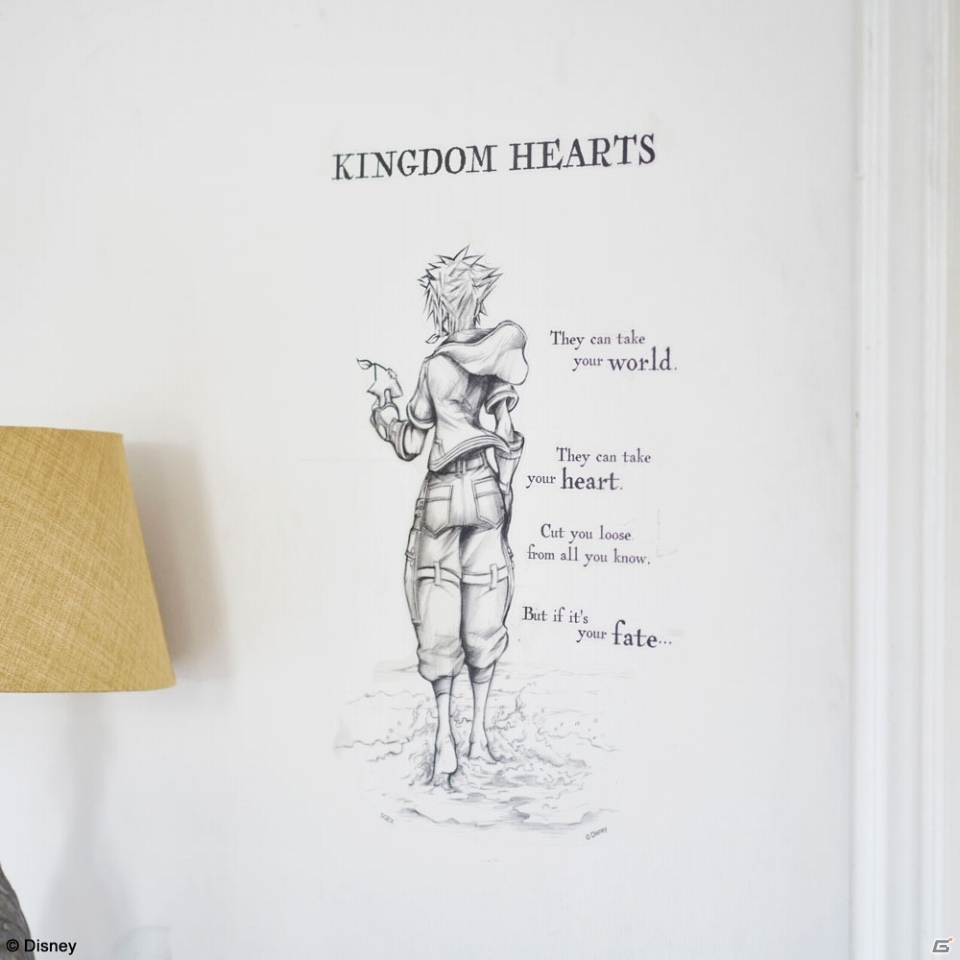 KINGDOM HEARTS
They can take
your world.
They can take
your heart.
Cut you loose
from all you know.
But if it's
your fate...
© Disney
© Disney